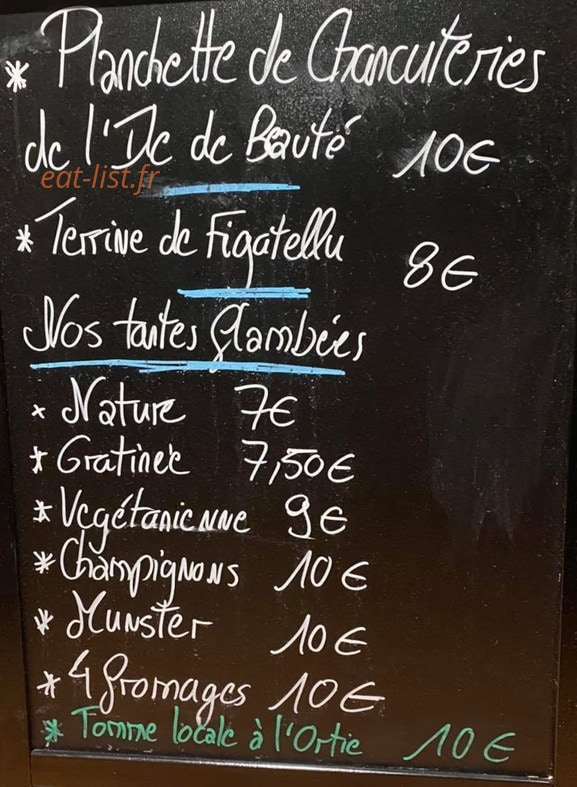 * Planchette de Charcuteries
de l'Ile de Beauté 10€
eat-list.fr
* Terrine de Figatellu 8€
Nos tartes flambées
* Nature 7€
* Gratinée 7,50€
* Végétarienne 9€
* Champignons 10€
* Munster 10€
* 4 fromages 10€
* Tomme locale à l'Ortie 10€